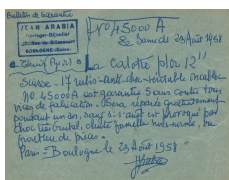 Bulletin de Garantie
N° 45000 A
JEAN ARABIA
Horloger-Bijoutier
BOULOGNE-Seine
& Samedi 23 Août 1958
La Calotte plor 12"
Suisse - 17 rubis - anti-choc - véritable incabloc
N° 45000 A est garantie 5 ans contre tous
vices de fabrication. Sera réparée gratuitement
pendant un an, sauf si l'arrêt est provoqué par
choc très brutal, chute
fracture de pièces.
Paris - Boulogne le 23 Août 1958